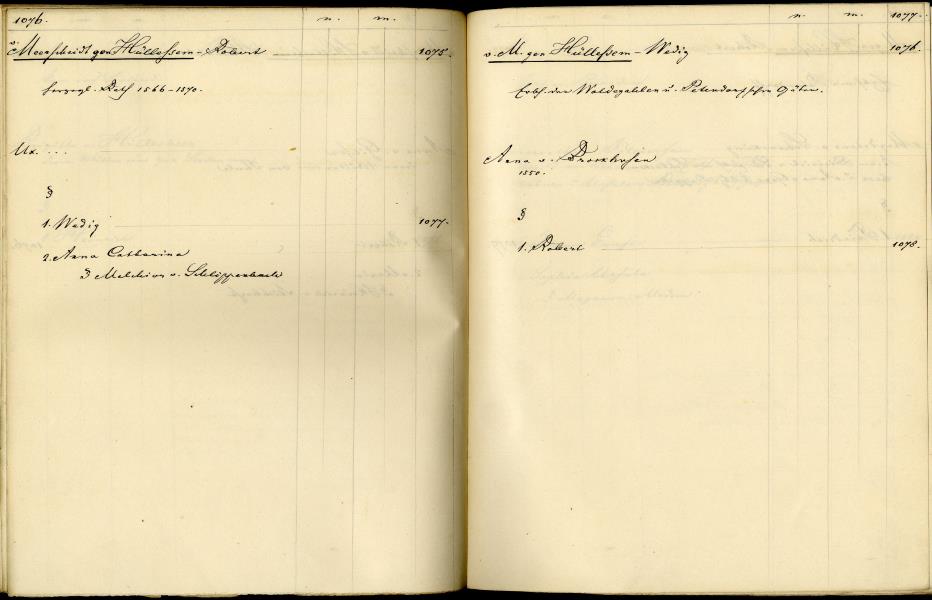 1076. n. m.
v. Meerscheidt gen Hüllessem - Robert 1075.
herzogl. Rath 1566-1570.
Ux. ...
§
1. Wedig 1077.
2. Anna Catharina
Melchior v. Schlippenbach
n. m. 1077.
v. M. gen Hüllessem - Wedig 1076.
Erbh. der Waldegahlen u. Petendorfschen Güter.
Anna v. Brockhusen
1550.
§
1. Robert 1078.